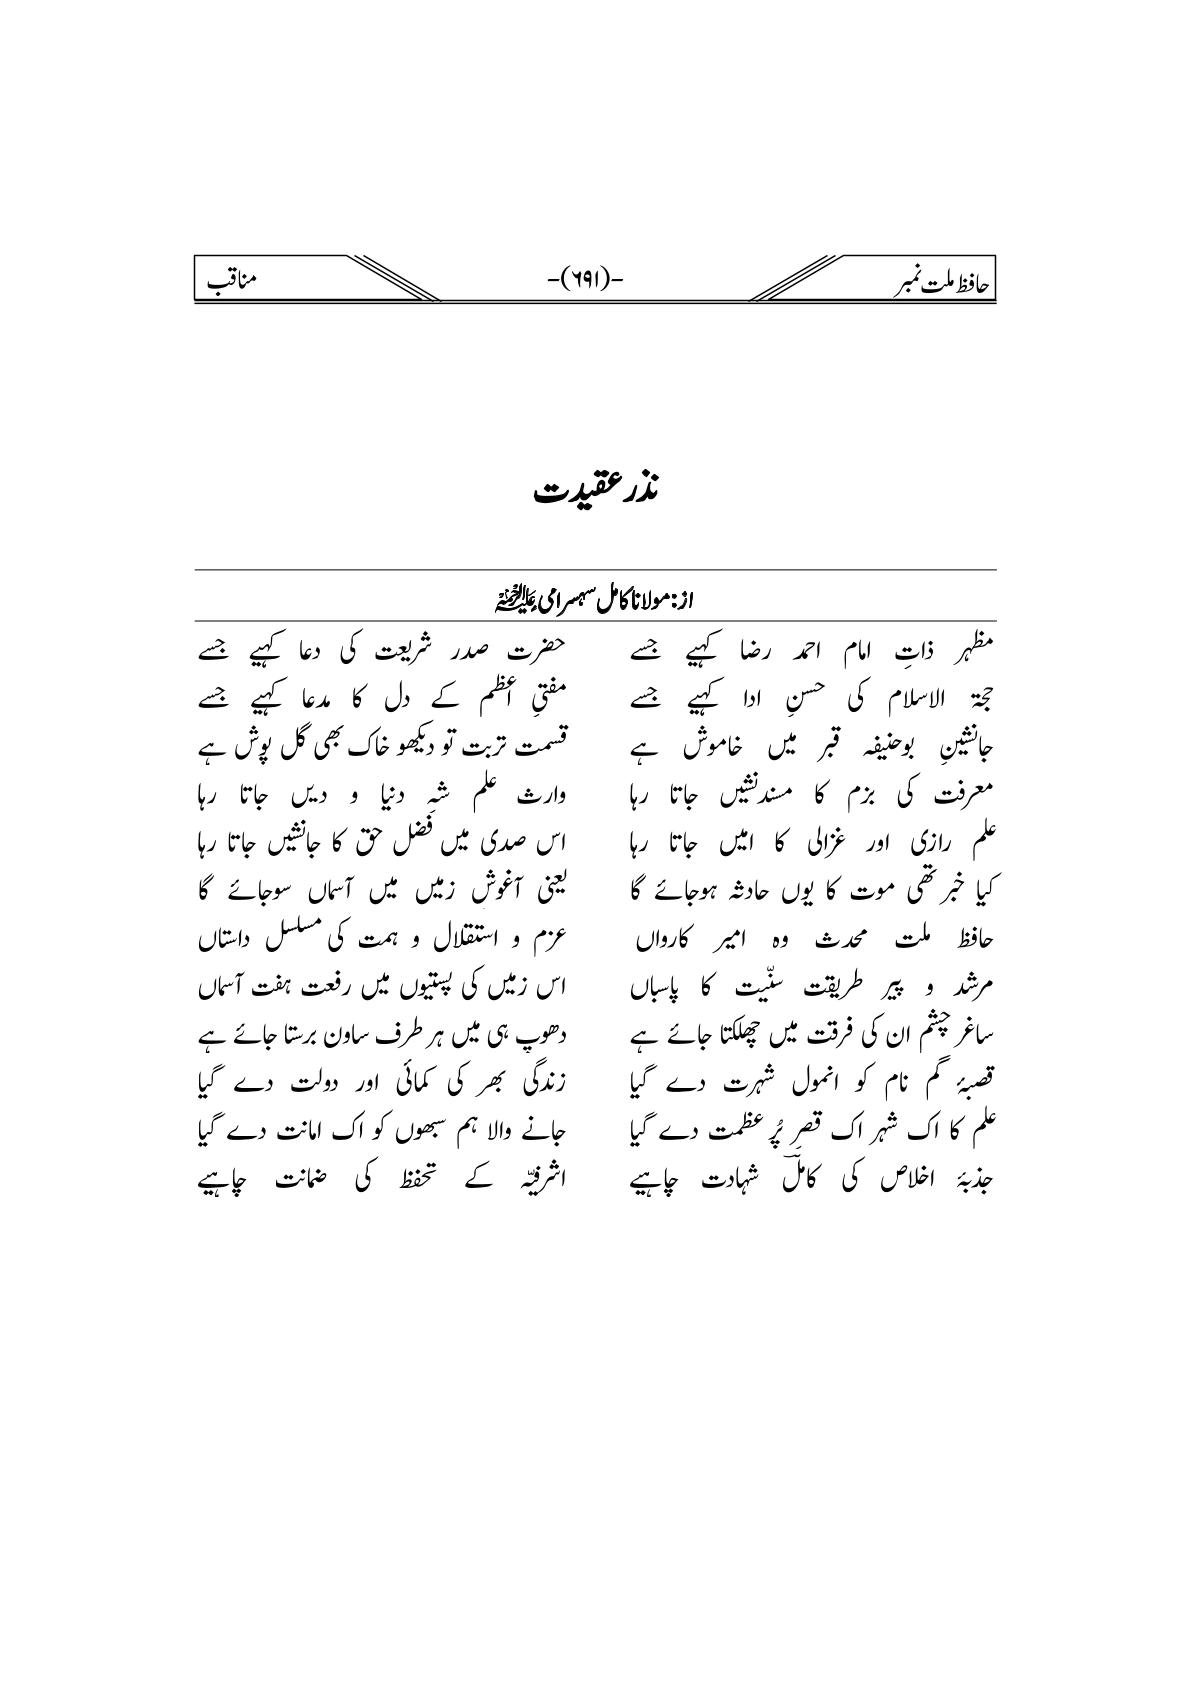 حافظ ملت نمبر -(۶۹۱)- مناقب
نذر عقیدت
از: مولانا کامل سہسرامی علیہ الرحمۃ
مظہر ذاتِ امام احمد رضا کہیے جسے حضرت صدر شریعت کی دعا کہیے جسے
حجۃ الاسلام کی حسنِ ادا کہیے جسے مفتیِ اعظم کے دل کا مدعا کہیے جسے
جانشینِ بوحنیفہ قبر میں خاموش ہے قسمت تربت تو دیکھو خاک بھی گل پوش ہے
معرفت کی بزم کا مسندنشیں جاتا رہا وارث علم شہِ دنیا و دیں جاتا رہا
علم رازی اور غزالی کا امیں جاتا رہا اس صدی میں فضل حق کا جانشیں جاتا رہا
کیا خبر تھی موت کا یوں حادثہ ہوجائے گا یعنی آغوشِ زمیں میں آسماں سوجائے گا
حافظ ملت محدث وہ امیر کارواں عزم و استقلال و ہمت کی مسلسل داستاں
مرشد و پیر طریقت سنّیت کا پاسباں اس زمیں کی پستیوں میں رفعت ہفت آسماں
ساغر چشم ان کی فرقت میں چھلکتا جائے ہے دھوپ ہی میں ہر طرف ساون برستا جائے ہے
قصبۂ گم نام کو انمول شہرت دے گیا زندگی بھر کی کمائی اور دولت دے گیا
علم کا اک شہر اک قصرِ پُر عظمت دے گیا جانے والا ہم سبھوں کو اک امانت دے گیا
جذبۂ اخلاص کی کاملؔ شہادت چاہیے اشرفیّہ کے تحفظ کی ضمانت چاہیے